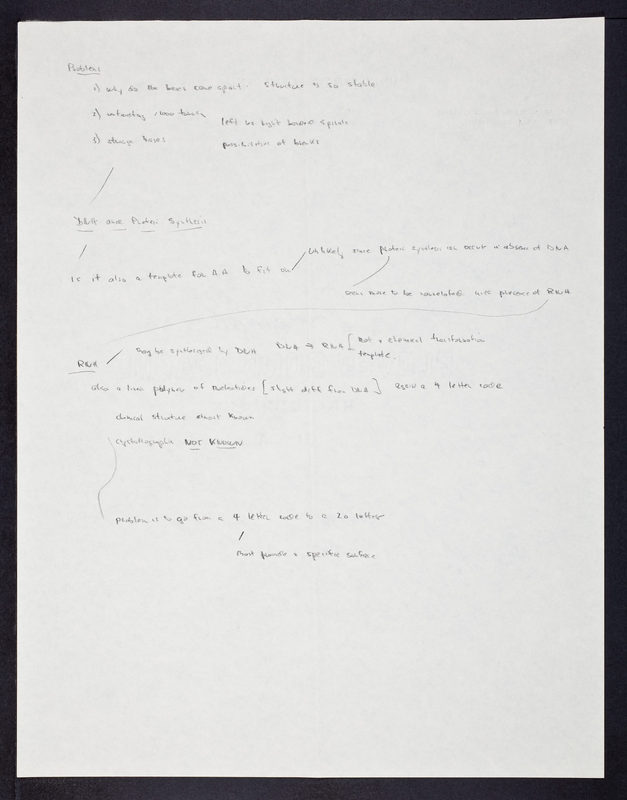 Problems
1) why do the bases come apart. Structure is so stable
2) untwisting 1000 turns
left vs right handed spirals
3) strange bases
possibilities of breaks
DNA and Protein Synthesis
Unlikely since protein synthesis can occur in absence of DNA
Is it also a template for A.A to fit on
seems more to be correlated with presence of RNA
RNA
may be synthesized by DNA DNA → RNA [ Not a chemical transformation
template.
also a linear polymer of nucleotides [slight diff from DNA] again a 4 letter code
chemical structure almost known
crystallographic NOT KNOWN
problem is to go from a 4 letter code to a 20 letter
must provide a specific surface